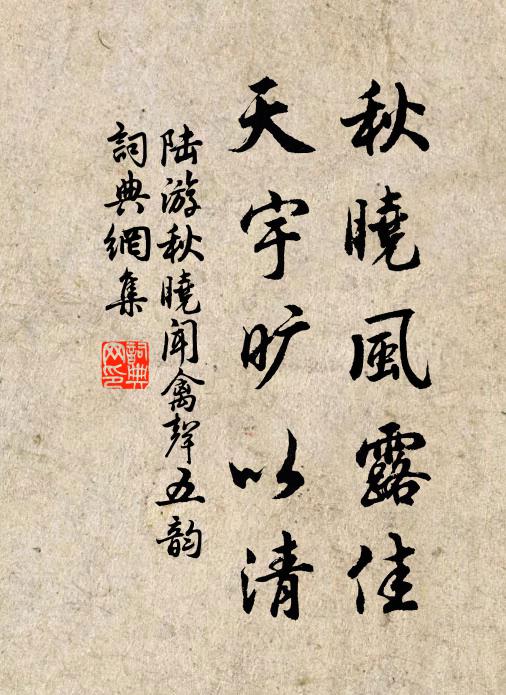 秋曉風露佳
天宇旷以清
陆游秋曉闻禽聲五韵
詞典網集
詞典网印